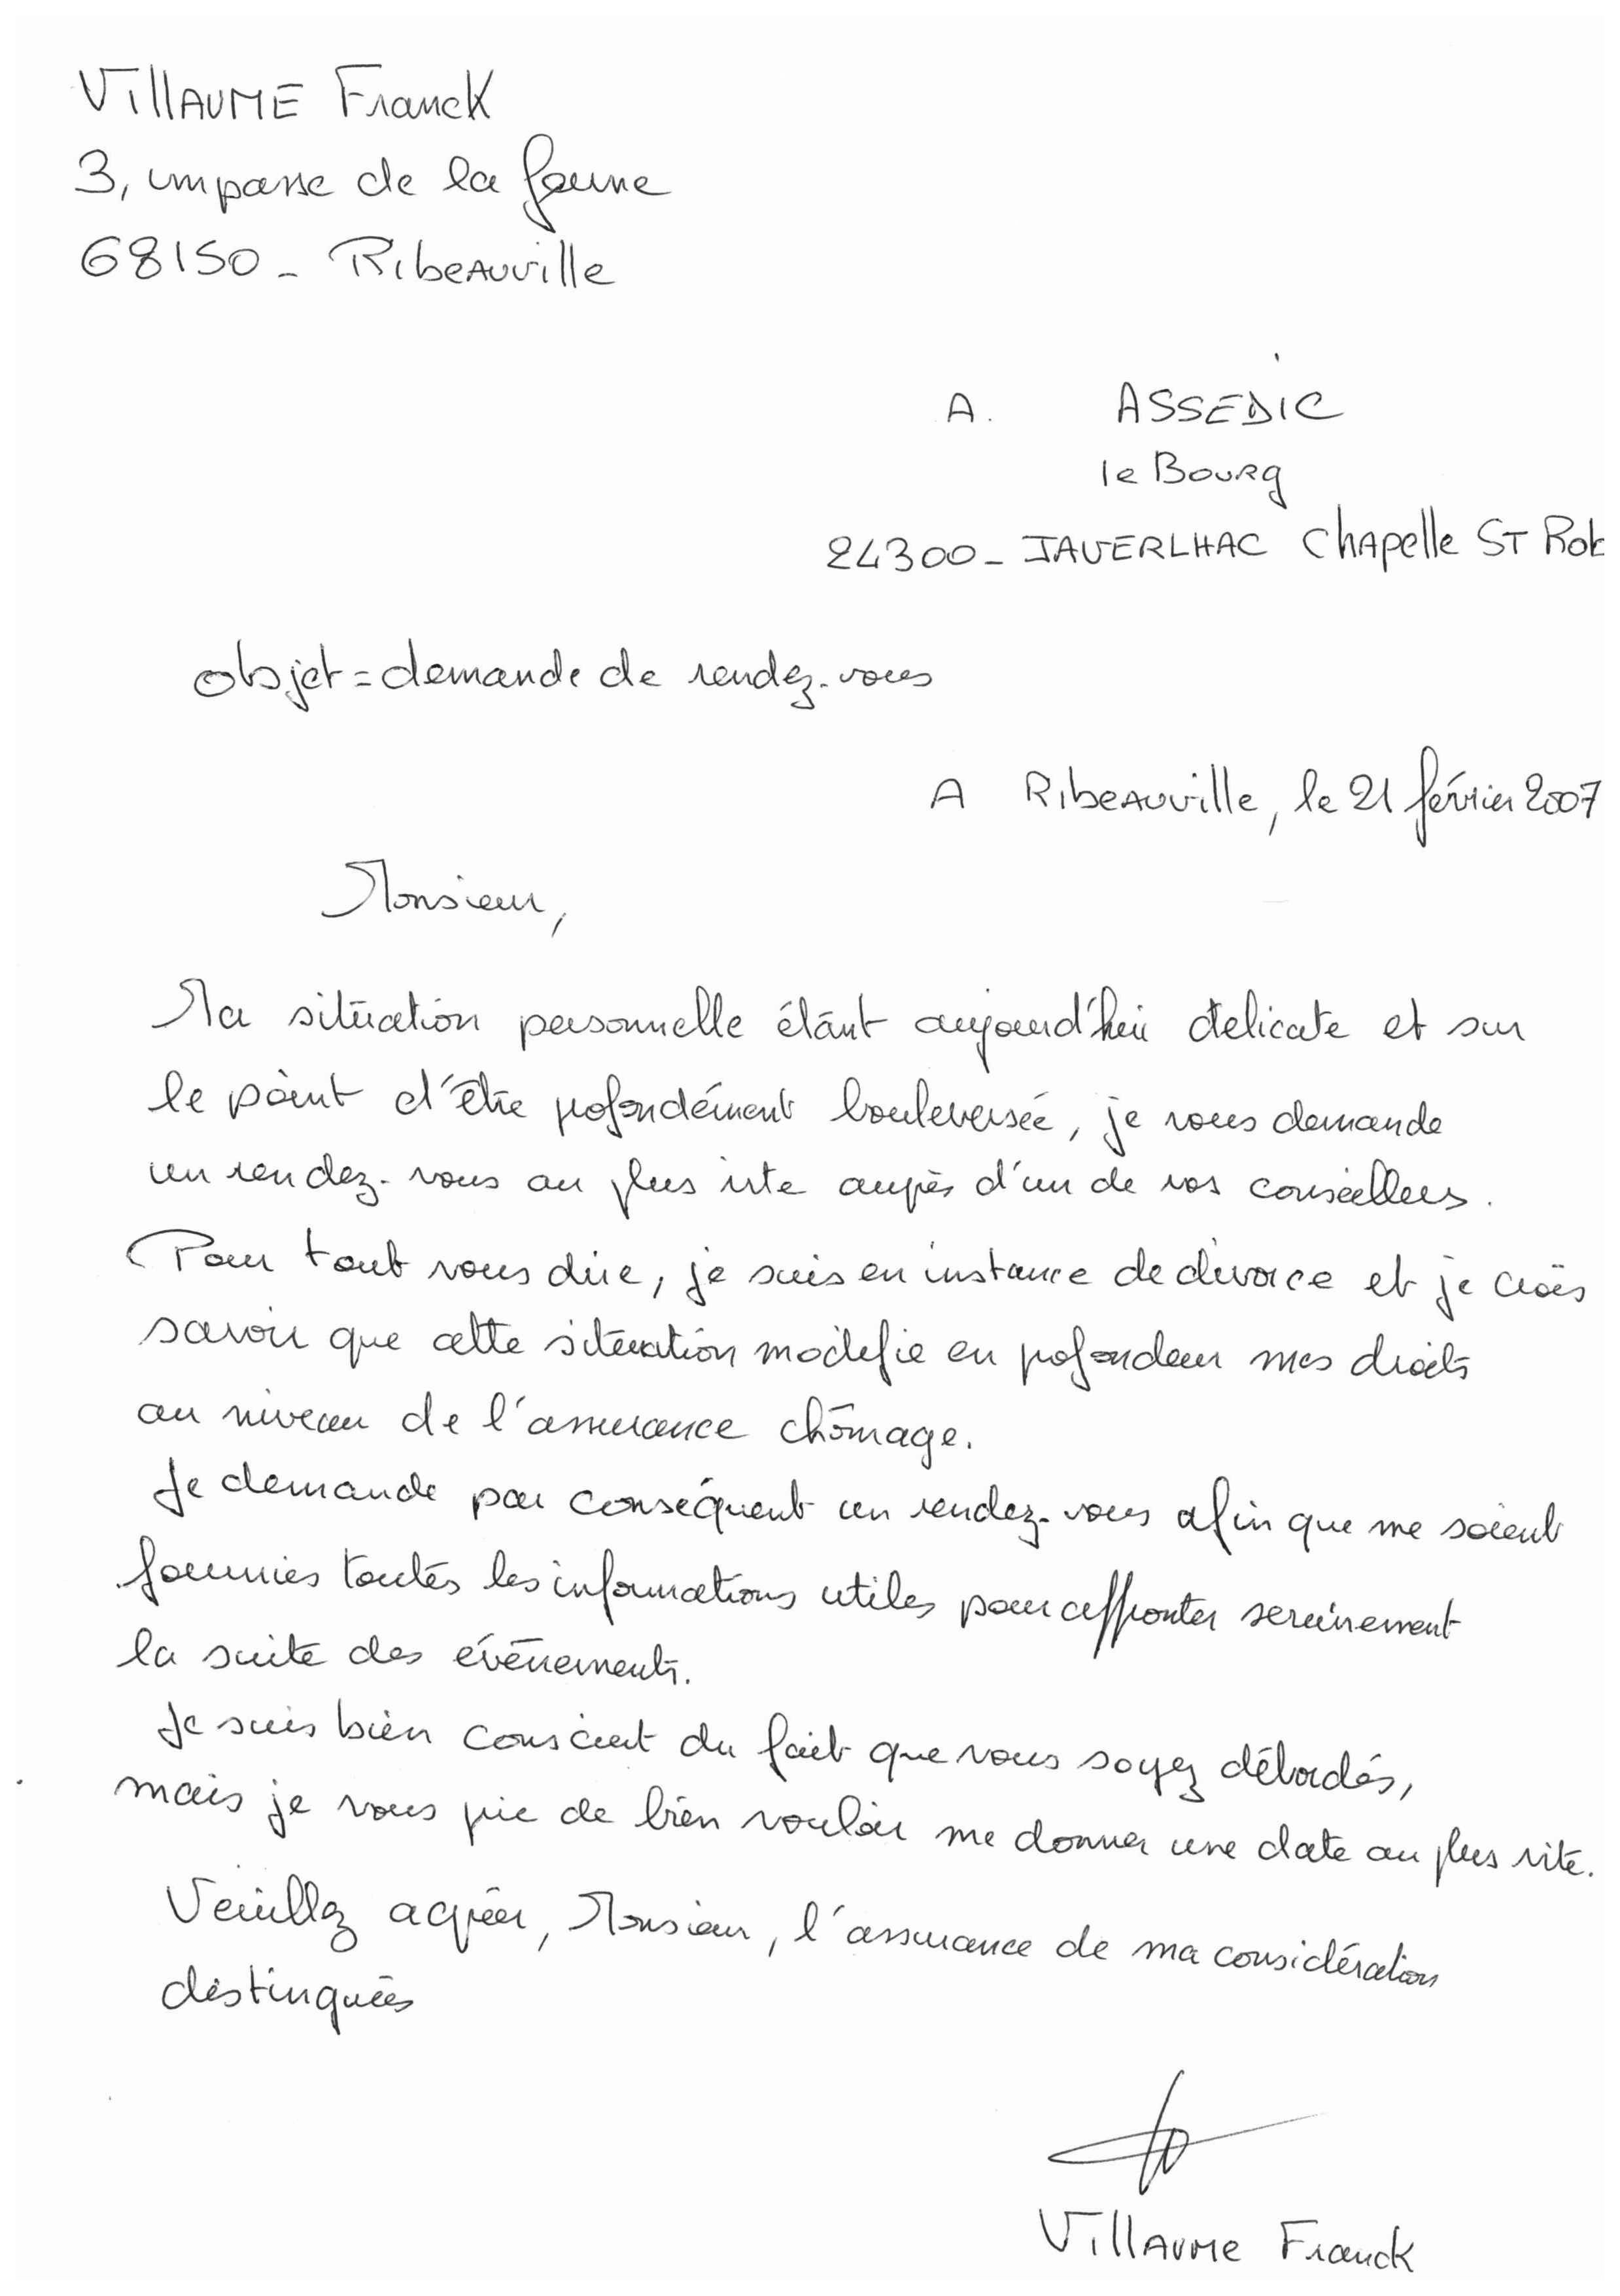 VillAUME Franck
3, impasse de la faune
68150 - Ribeauville
A. ASSEDIC
le Bourg
24300 - JAVERLHAC Chapelle ST Rob
objet = demande de rendez-vous
A Ribeauville, le 21 février 2007
Monsieur,
Ma situation personnelle étant aujourd'hui délicate et sur
le point d'être profondément bouleversée, je vous demande
un rendez-vous au plus vite auprès d'un de vos conseillers.
Pour tout vous dire, je suis en instance de divorce et je crois
savoir que cette situation modifie en profondeur mes droits
au niveau de l'assurance chômage.
Je demande par conséquent un rendez-vous afin que me soient
fournies toutes les informations utiles pour affronter sereinement
la suite des événements.
Je suis bien conscient du fait que vous soyez débordés,
mais je vous prie de bien vouloir me donner une date au plus vite.
Veuillez agréer, Monsieur, l'assurance de ma considération
distinguées
VillAUME Franck